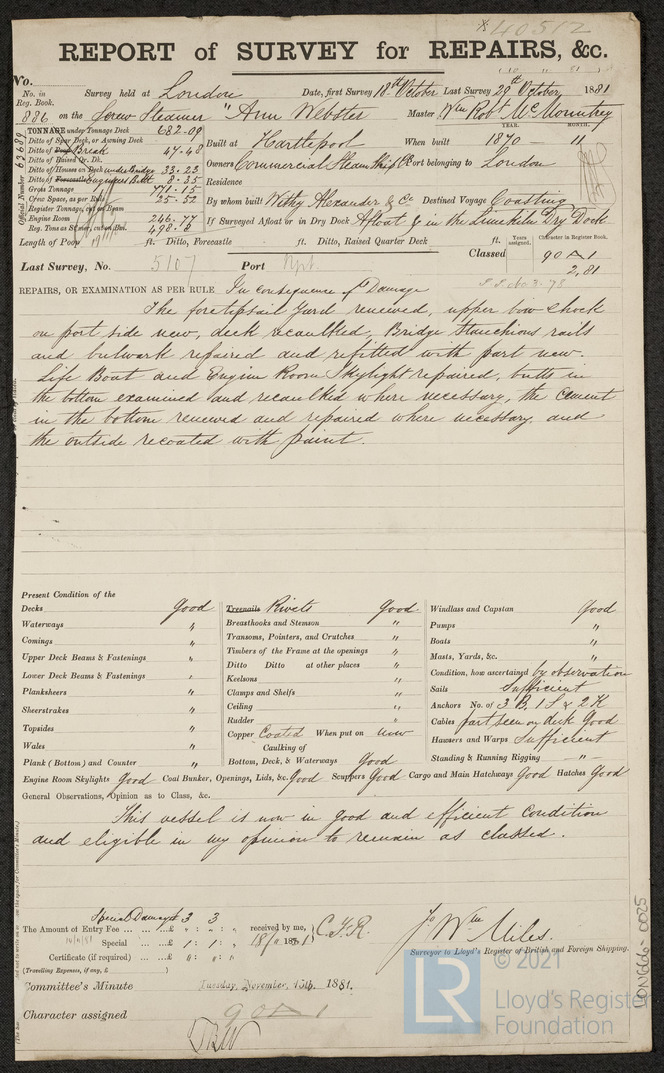 40512
REPORT of SURVEY for REPAIRS, &c.
No.
No. in Reg. Book. Survey held at London Date, first Survey 18th October Last Survey 29th October 1881
886 on the Screw Steamer "Ann Webster" Master Wm Robt McMountrey
TONNAGE under Tonnage Deck 682.09
Ditto of Spar Deck, or Awning Deck
Ditto of Break 47.48
Ditto of Raised Qr. Dk.
Ditto of Houses on Deck under Bridge 33.23
Ditto of Forecastle Engineers Belt 8.35
Gross Tonnage 771.15
Crew Space, as per Rule 25.52
Register Tonnage, cut on Beam
Engine Room 246.77
Reg. Tons as Stmer, cut on Bm.
Official Number 63689
YEAR. MONTH.
Built at Hartlepool When built 1870 11
Owners Commercial Steam Ship Co Port belonging to London
Residence
By whom built Withy Alexander & Co Destined Voyage Coasting
If Surveyed Afloat or in Dry Dock Afloat & in the Limekiln Dry Dock
Length of Poop ft. Ditto, Forecastle ft. Ditto, Raised Quarter Deck ft.
Years assigned. Character in Register Book.
Classed 90 A 1
2,81
Last Survey, No. 5107 Port Npt.
S.S. No 3-78
REPAIRS, OR EXAMINATION AS PER RULE In consequence of Damage
The foretopsail Yard renewed, upper bow chock
on port side new, deck recaulked, Bridge Stanchions rails
and bulwark repaired and refitted with part new.
Life Boat and Engine Room Skylight repaired, butts in
the bottom examined and recaulked where necessary, the cement
in the bottom renewed and repaired where necessary and
the outside recoated with paint.
Present Condition of the
Decks Good
Waterways "
Comings "
Upper Deck Beams & Fastenings "
Lower Deck Beams & Fastenings "
Planksheers "
Sheerstrakes "
Topsides "
Wales "
Plank (Bottom) and Counter "
Treenails Rivets Good
Breasthooks and Stemson "
Transoms, Pointers, and Crutches "
Timbers of the Frame at the openings "
Ditto Ditto at other places "
Keelsons "
Clamps and Shelfs "
Ceiling "
Rudder "
Copper Coated When put on now
Caulking of
Bottom, Deck, & Waterways Good
Windlass and Capstan Good
Pumps "
Boats "
Masts, Yards, &c. "
Condition, how ascertained by observation
Sails Sufficient
Anchors No. of 3 B, 1 S & 2 K
Cables part seen on deck Good
Hawsers and Warps Sufficient
Standing & Running Rigging "
Engine Room Skylights Good Coal Bunker, Openings, Lids, &c. Good Scuppers Good Cargo and Main Hatchways Good Hatches Good
General Observations, Opinion as to Class, &c.
This vessel is now in good and efficient condition
and eligible in my opinion to remain as classed.
Special Damage £ 3 3
The Amount of Entry Fee ... £ " : " : " received by me,
Special ... £ 1 : 1 : " C.F.R.
Certificate (if required) ... £ 0 : 0 : "
(Travelling Expenses, if any, £ )
Jo Wm Miles.
Surveyor to Lloyd's Register of British and Foreign Shipping.
Committee's Minute Tuesday, November, 15th, 1881.
Character assigned 90 A 1
LON666-0025
LR
© 2021
Lloyd's Register
Foundation